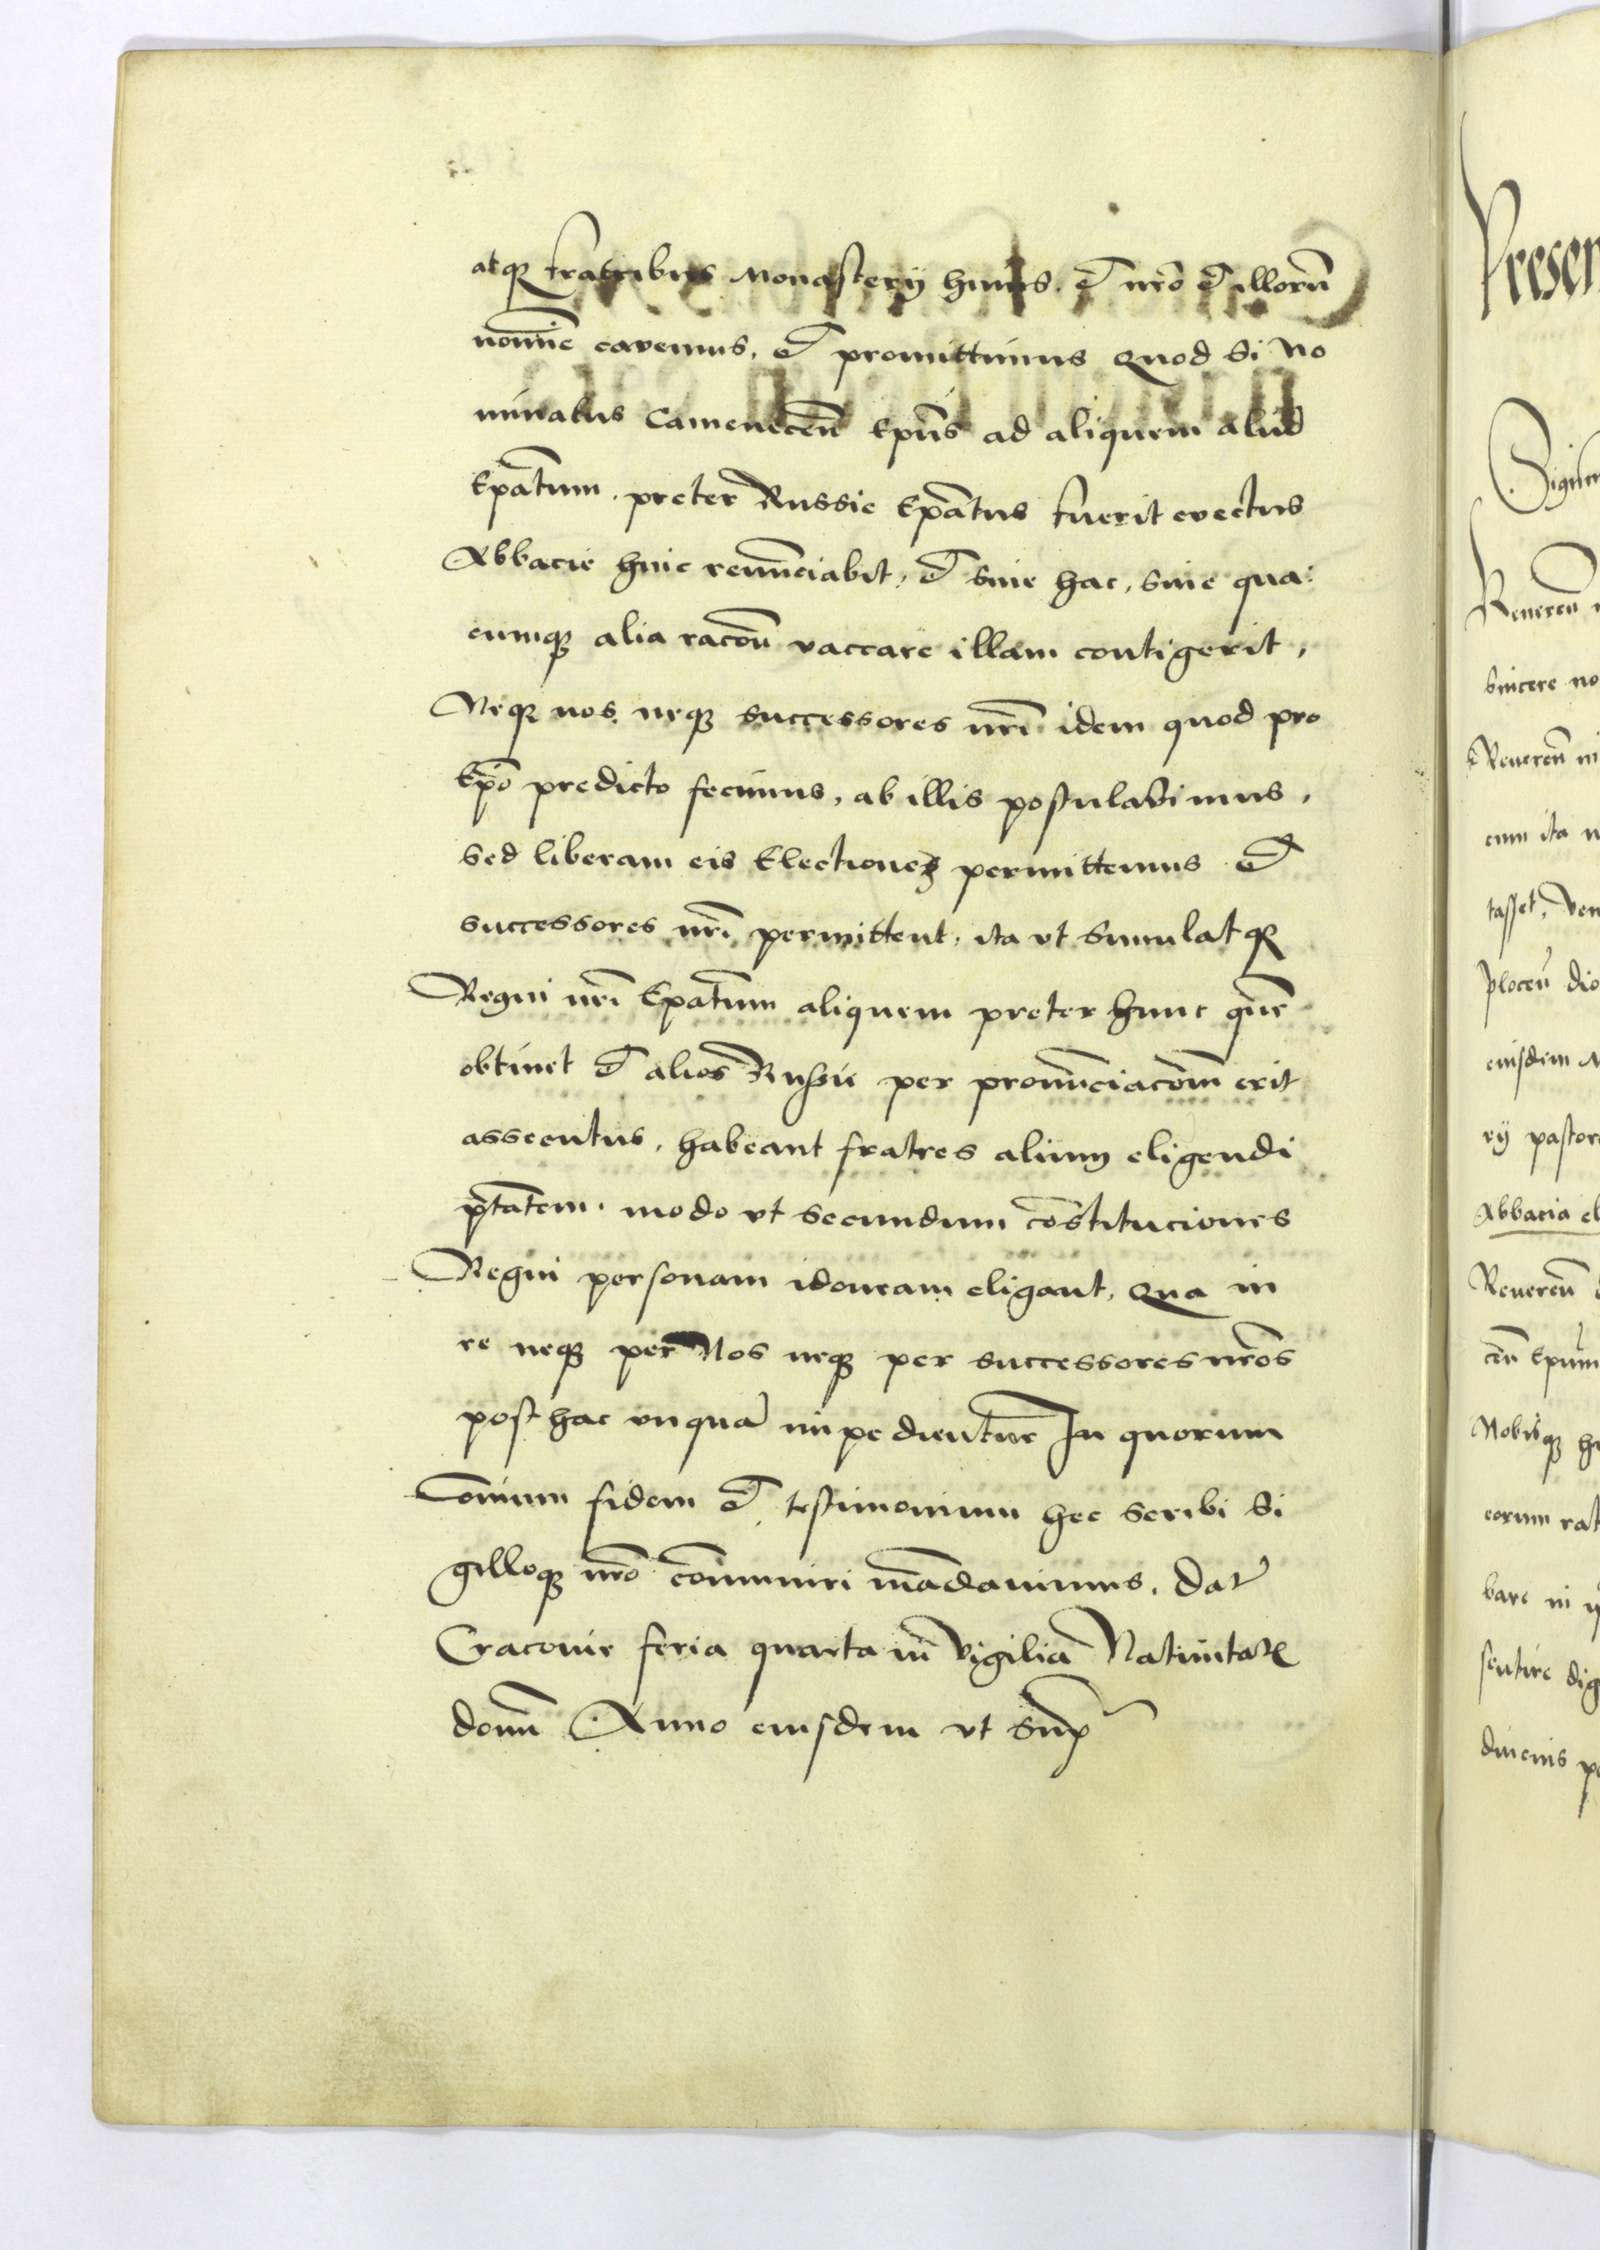 atq₃ fratribus Monasterij huius. et nrō et illorū
nomīe cavemus, et promittimus Quod si no
minatus Camenecēn Epūs ad aliquem aliud
Epātum. preter Russie Epātus fuerit evectus
Abbacie huic renūnciabit, et siue hac, siue qua:
cumq₃ alia racōn vaccare illam contigerit,
Neq₃ nos neq₃ successores nrī idem quod pro
Epō predicto fecimus, ab illis postulabimus,
sed liberam eis Electionez permittemus et
successores nrī permittent, ita ut simulatq₃
Regni nrī Epātum aliquem preter hunc quē
obtinet et alios Russie per pronūnciacōm erit
assecutus, habeant fratres alium eligendi
ptātem. modo vt secundum cōstituciones
Regni personam idoneam eligant, Qua in
re neq₃ per Nos neq₃ per successores nrōs
post hac vnquā impedientur In quorum
omīum fidem et testimonium hec scribi si
gilloq₃ nrō cōmmuniri mādauimus. Dat
Cracouie feria quarta in vigilia Natiuitatis
domī Anno eiusdem vt supra
Reuerēn
sincere no
Reuerēn
cum ita
tasset, ven
plocēn dio
eiusdem
rij pastor
Abbacia el
Reuerēn
cēn Epum
Nobisq₃
eorum rat
bare in
sentire dig